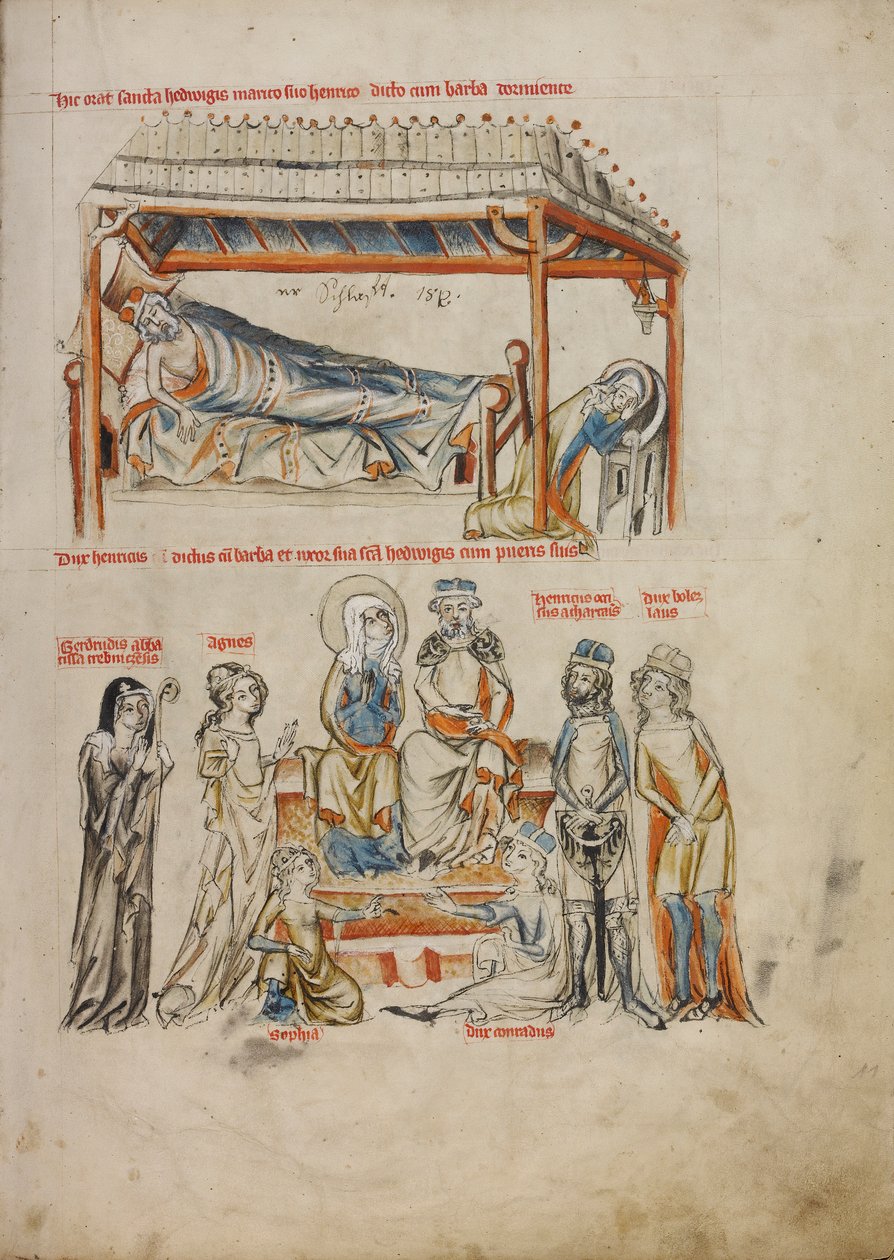 Hic orat sancta hedwigis marito suo henrico dicto cum barba dormiente
er Schlafft.
Dux henricus dictus cū barba et uxor sua scā hedwigis cum pueris suis
Gerdrudis abba
tissa trebniczēsis
Agnes
Henricus occi
sus a thartaris
dux boles
laus
Sophia
Dux conradus
11